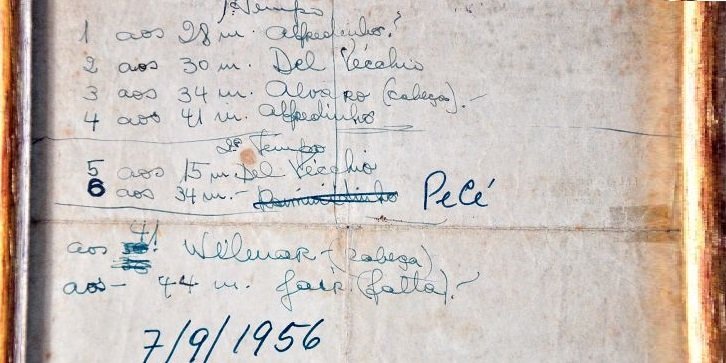 1º Tempo
1 aos 28 m. Alfredinho.
2 aos 30 m. Del Vécchio
3 aos 34 m. Alvaro (cabeça).-
4 aos 41 m. Alfredinho
2º Tempo
5 aos 15 m. Del Vécchio
6 aos 34 m.- Raimundinho Pelé
aos 41 Wilmar (cabeça)
aos - 44 m. Jair (falta).-
7/9/1956